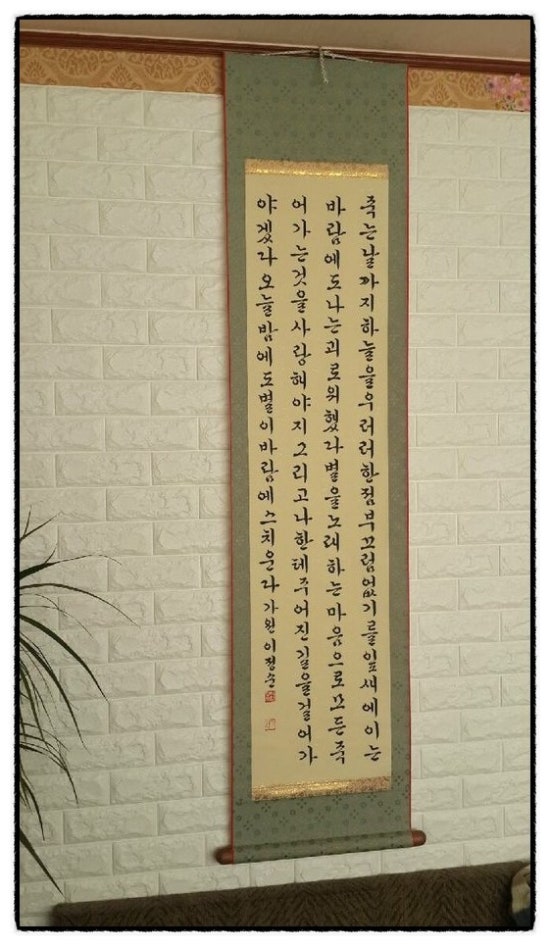 죽는날까지하늘을우러러한점부끄럼없기를잎새에이는
바람에도나는괴로워했다별을노래하는마음으로모든죽
어가는것을사랑해야지그리고나한테주어진길을걸어가
야겠다오늘밤에도별이바람에스치운다 가원이정순